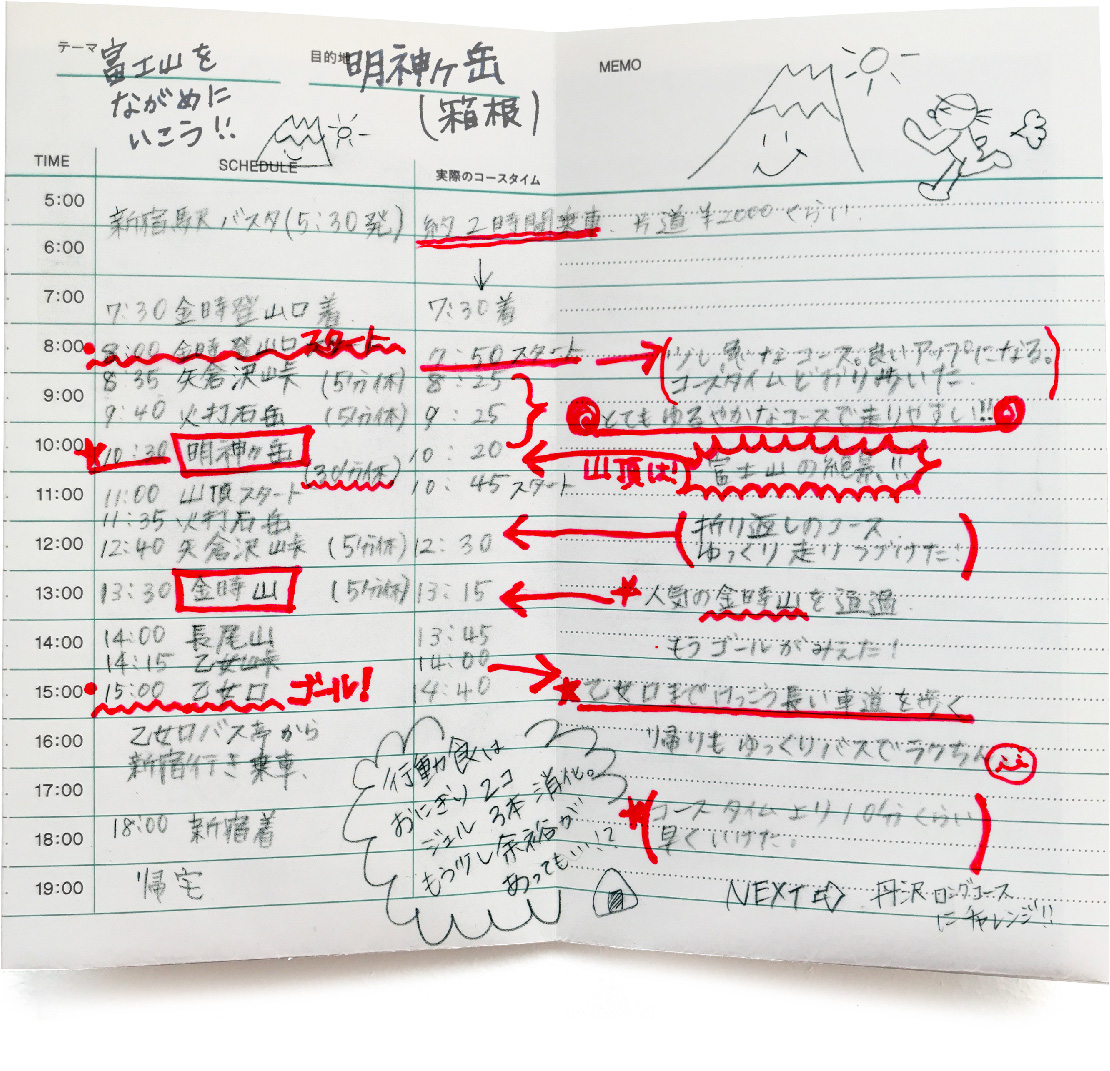 テーマ 富士山を
ながめに
いこう!!
目的地 明神ヶ岳
(箱根)
MEMO
TIME SCHEDULE 実際のコースタイム
5:00 新宿駅バスタ(5:30発) 約2時間乗車. 片道¥2000くらい
6:00
7:00 7:30 金時登山口着 7:30着
8:00 8:00 金時登山口スタート 7:50スタート
(少し急なコース。良いアップになる。
コースタイムどおり歩いた.)
8:35 矢倉沢峠 (5分休) 8:25
9:00
9:40 火打石岳 (5分休) 9:25 とてもゆるやかなコースで走りやすい!!
10:00 10:30 明神ヶ岳 (30分休) 10:20 山頂は! 富士山の絶景!!
11:00 11:00 山頂スタート 10:45スタート
11:35 火打石岳
(折り返しのコース
ゆっくり走りつづけた!)
12:00 12:40 矢倉沢峠 (5分休) 12:30
13:00 13:30 金時山 (5分休) 13:15 人気の金時山を通過
14:00 14:00 長尾山 13:45 もうゴールがみえた!
14:15 乙女峠 14:00
15:00 15:00 乙女口 ゴール! 14:40 乙女口までけっこう長い車道を歩く
16:00 乙女口バス亭から
新宿行き乗車.
帰りもゆっくりバスでラクちん
17:00
18:00 18:00 新宿着
(コースタイムより10分くらい
早くいけた.)
19:00 帰宅
行動食は
おにぎり2コ
ジェル3本 消化。
もう少し余裕が
あってもいい!?
NEXT⇨ 丹沢ロングコース
にチャレンジ!!